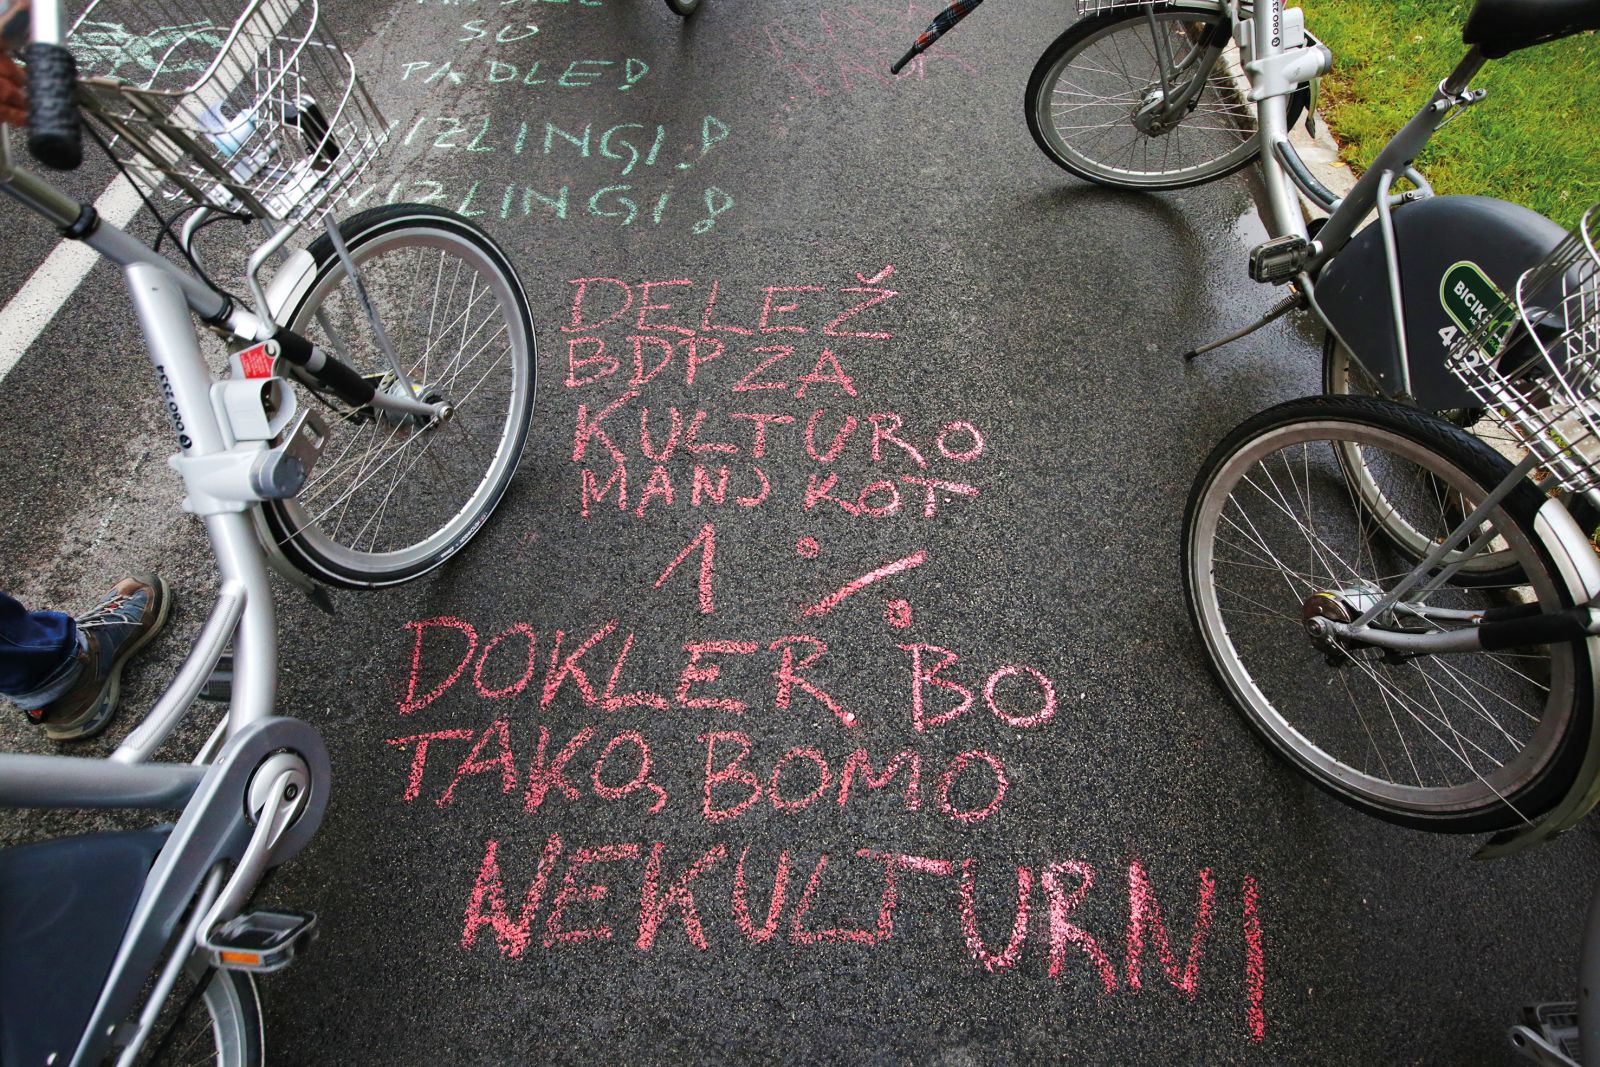 SO
PADLED!
VIZLINGI!
VIZLINGI!
DELEŽ
BDP ZA
KULTURO
MANJ KOT
1 %.
DOKLER BO
TAKO, BOMO
NEKULTURNI
080 2334
080 23
BICIK